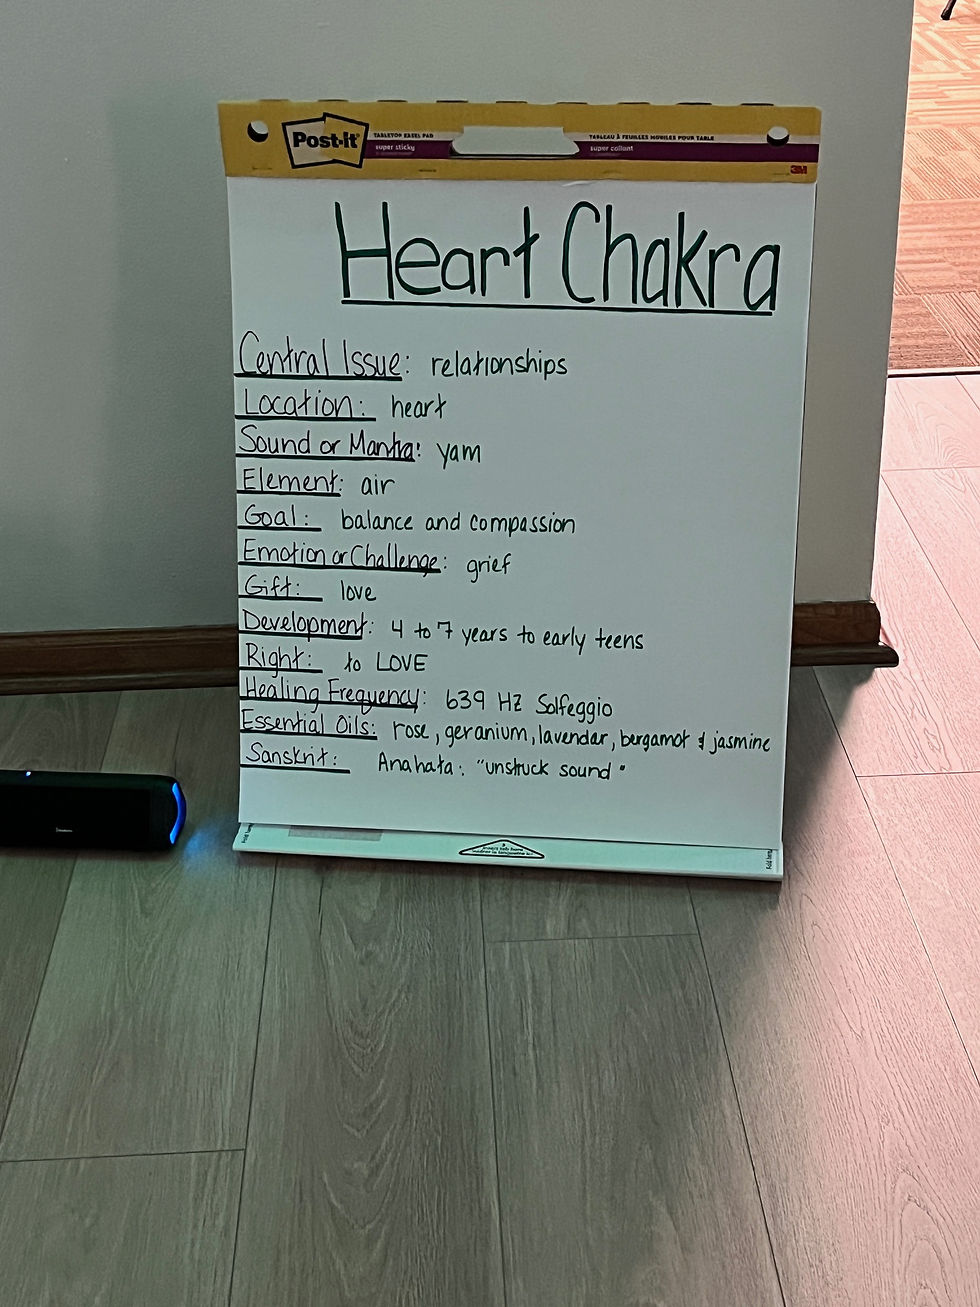 Post-it
TABLETOP EASEL PAD
super sticky
TABLEAU À FEUILLES MOBILES POUR TABLE
super collant
3M
Heart Chakra
Central Issue: relationships
Location: heart
Sound or Mantra: yam
Element: air
Goal: balance and compassion
Emotion or Challenge: grief
Gift: love
Development: 4 to 7 years to early teens
Right: to LOVE
Healing Frequency: 639 HZ Solfeggio
Essential Oils: rose, geranium, lavendar, bergamot & jasmine
Sanskrit: Anahata: "unstruck sound"